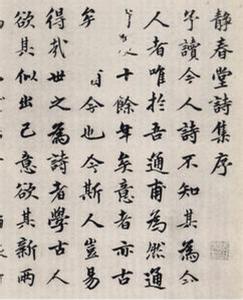 静春堂詩集序
予讀今人詩不知其為今
人者唯於吾通甫為然通
十餘年矣意者亦古
矣 今也今斯人豈易
得哉世之為詩者學古人
欲其似出己意欲其新兩